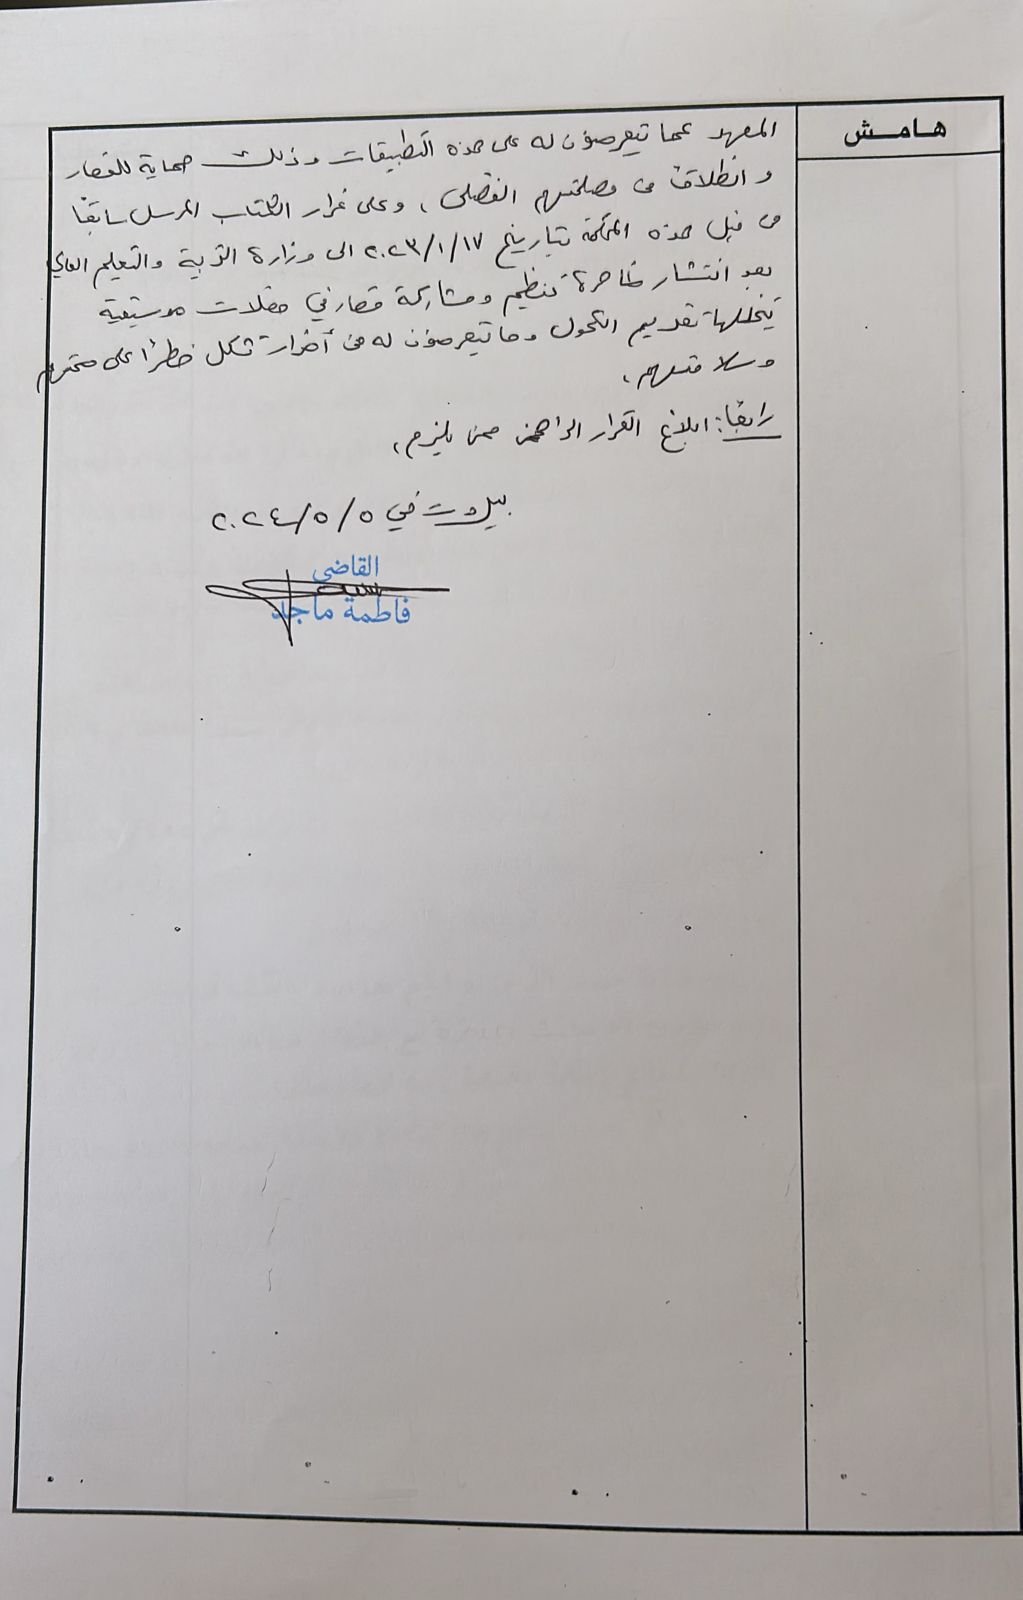 هامش
المعهد عما تيعرضون له على هذه التطبيقات وذلك حماية للقصار
و انطلاقا من مصلحتهم الفضلى، وعلى غرار الكتاب المرسل سابقا
من قبل هذه المحكمة بتاريخ ٢٠٢٣/١/١٧ الى وزارة التربية والتعليم العالي
بعد انتشار ظاهرة تنظيم ومشاركة قصار في حفلات موسيقية
يتخللها تقديم الكحول وما تيعرضون له من أضرار تشكل خطرًا على صحتهم
وسلامتهم،
رابعًا: ابلاغ القرار الراهن ممن يلزم،
بيروت في ٢٠٢٤/٥/٥
القاضي
فاطمة ماجد